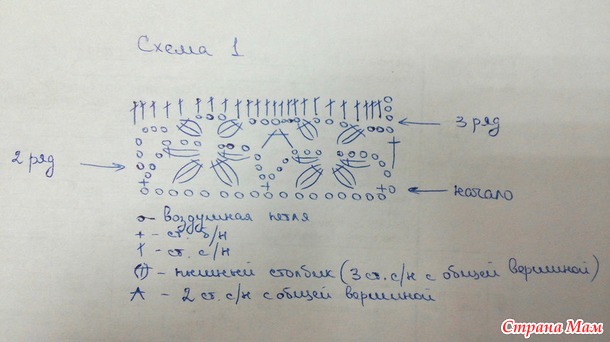 Схема 1
3 ряд
2 ряд
начало
о - воздушная петля
+ - ст. б/н
† - ст. с/н
- пышный столбик (3 ст. с/н с общей вершиной)
- 2 ст. с/н с общей вершиной
Страна Мам